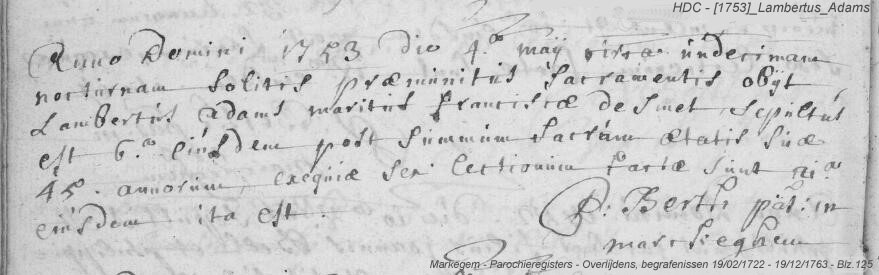 HDC - [1753]_Lambertus_Adams
Anno Domini 1753 die 4ta maij circa undecimam
nocturnam solitis præmunitus sacramentis obijt
Lambertus Adams maritus Franciscæ de Smet, sepultus
est 6ta eiusdem post summum sacrum ætatis suæ
45 annorum, exequiæ sex lectionum factæ sunt
eiusdem ita est.
P: Berth past: in
marckeghem
Markegem - Parochieregisters - Overlijdens, begrafenissen 19/02/1722 - 19/12/1763 - Blz.125